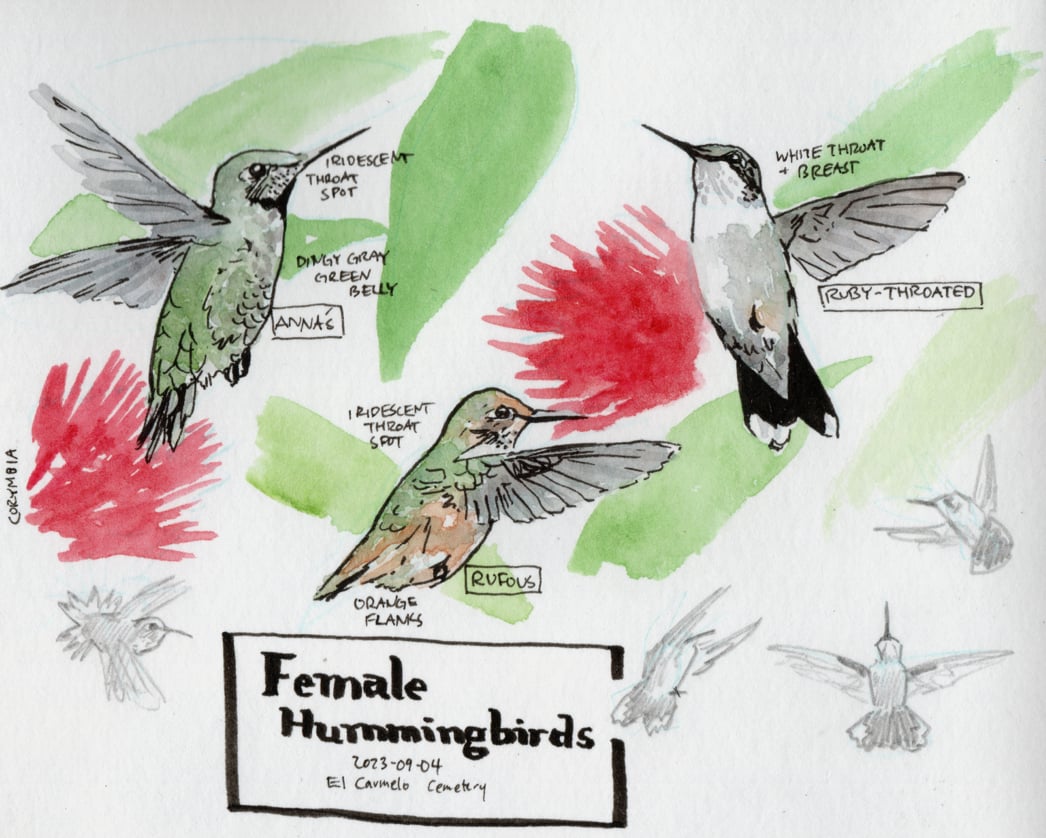 IRIDESCENT
THROAT
SPOT
DINGY GRAY
GREEN
BELLY
ANNA'S
WHITE THROAT
+ BREAST
RUBY-THROATED
IRIDESCENT
THROAT
SPOT
RUFOUS
ORANGE
FLANKS
CORYMBIA
Female
Hummingbirds
2023-09-04
El Carmelo Cemetery